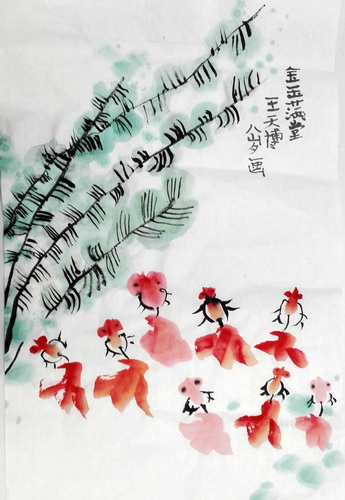 金玉满堂
王天博
八岁画